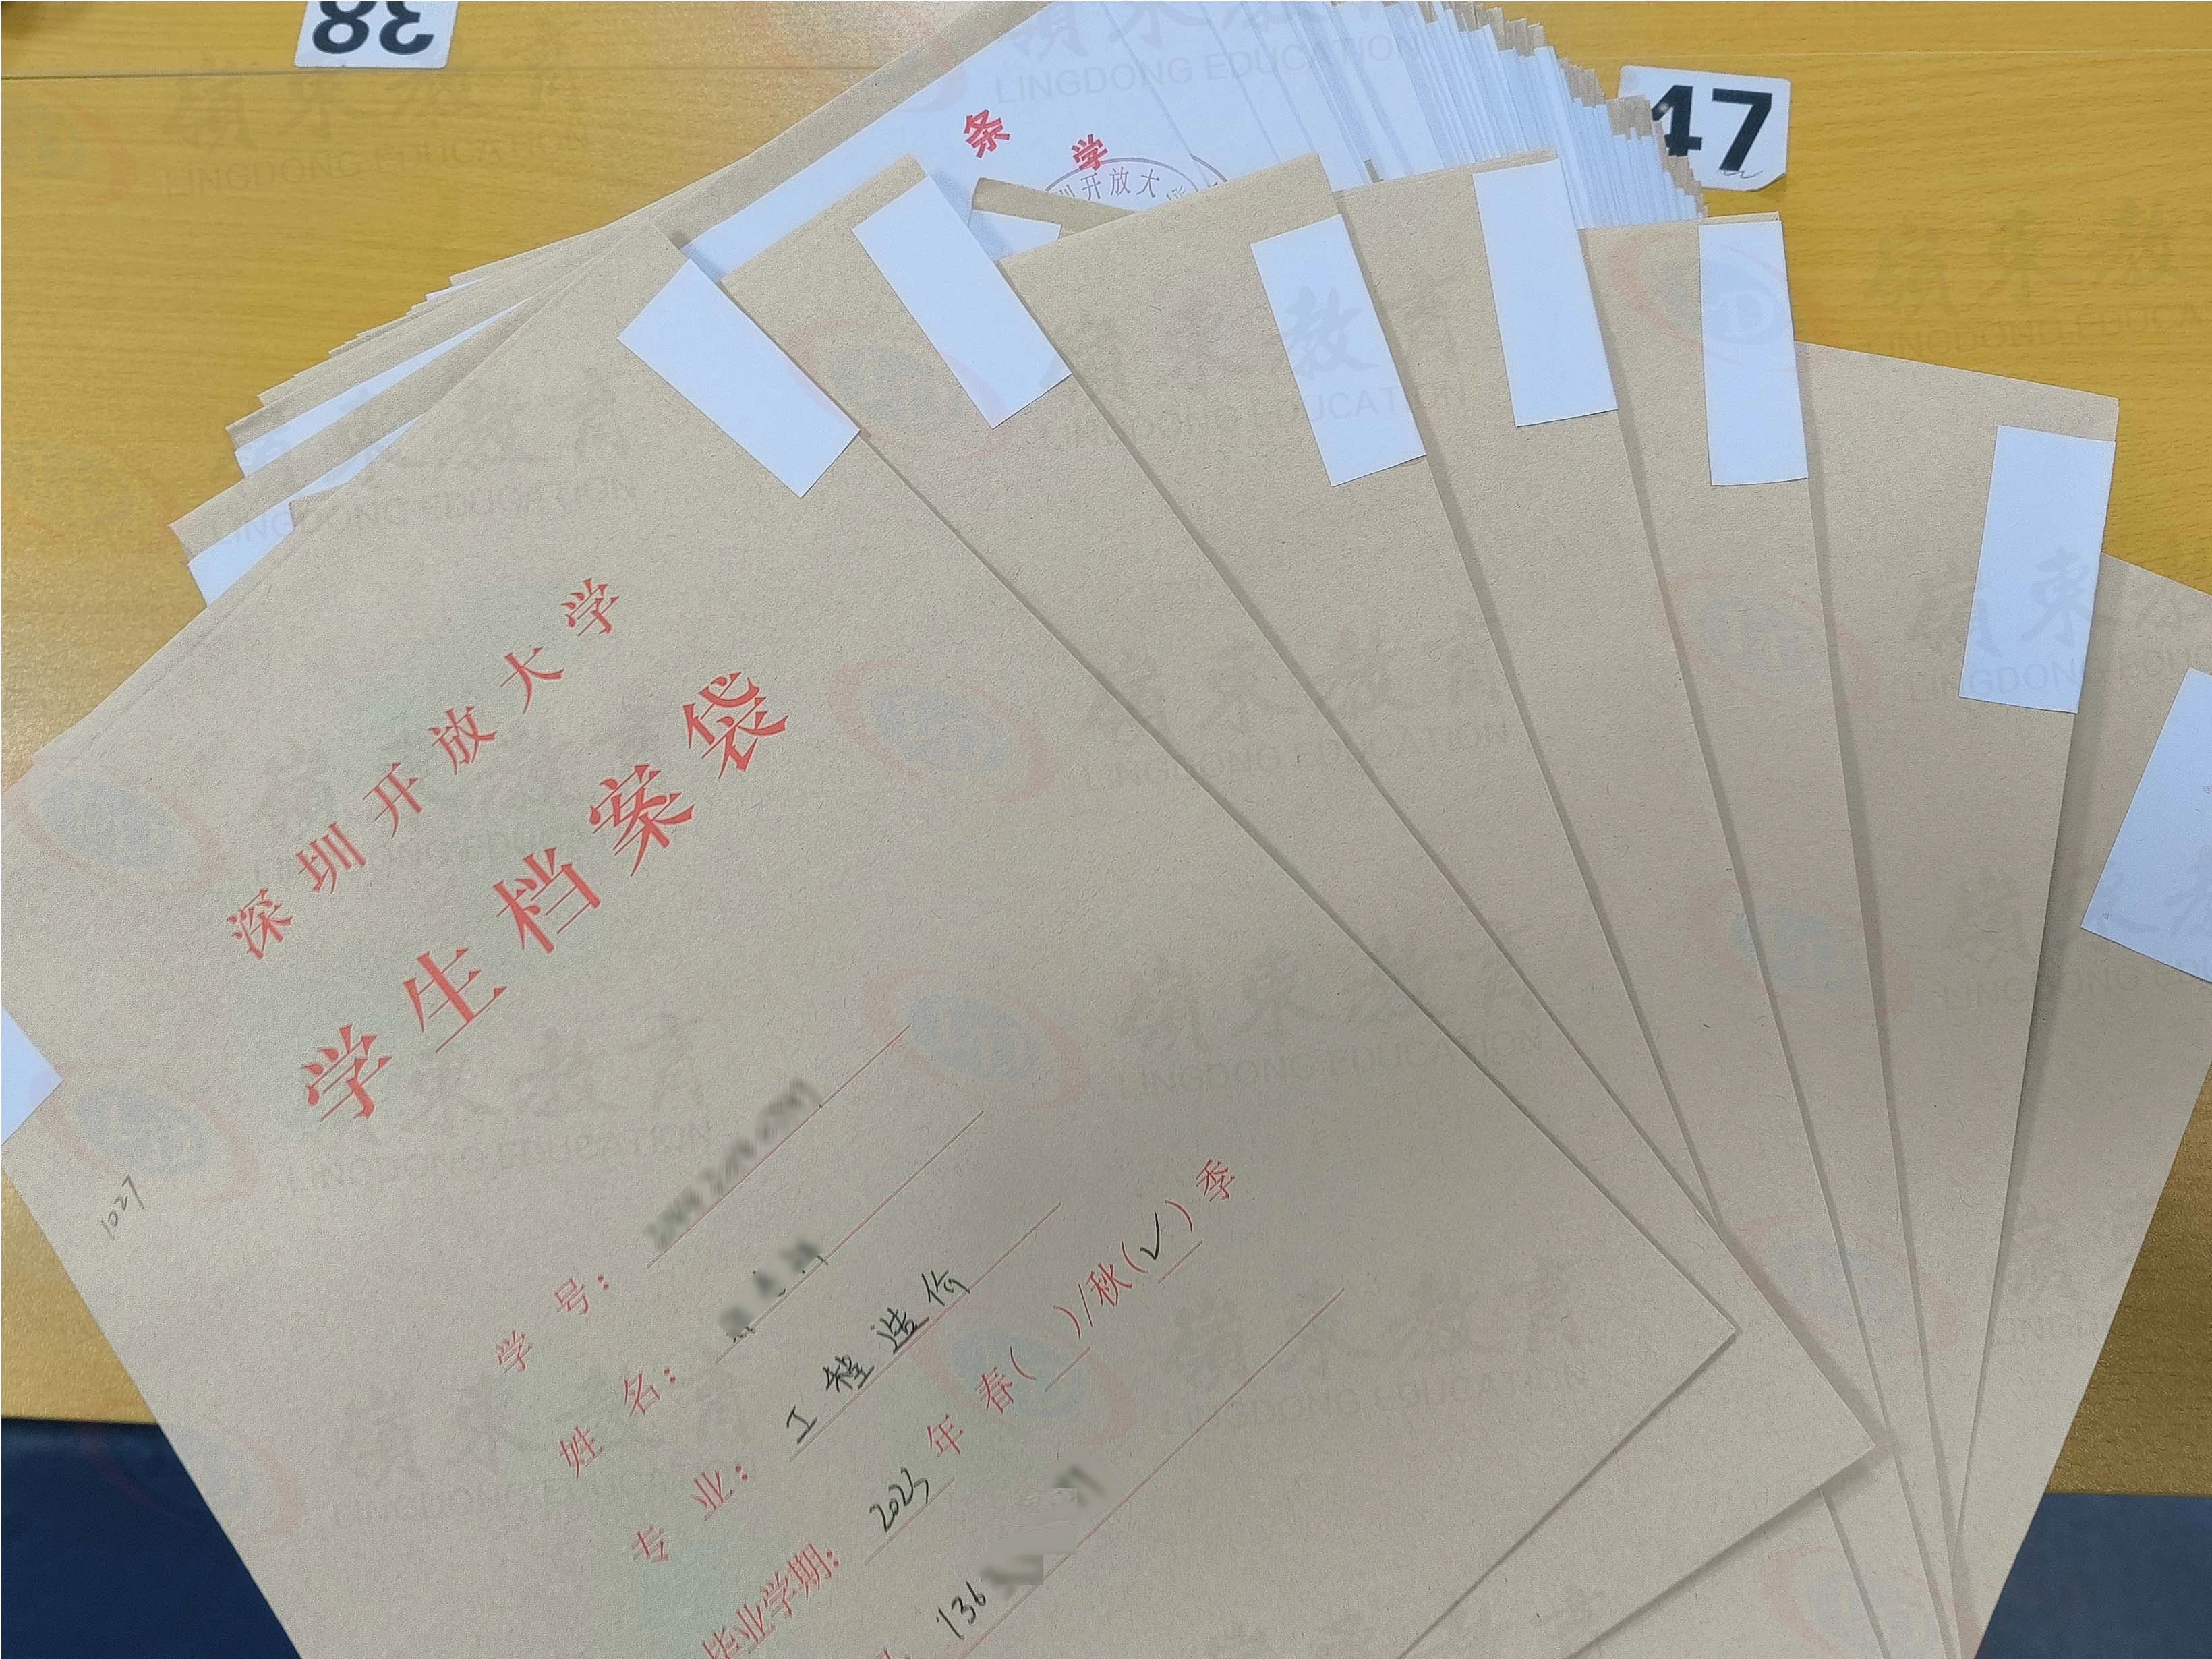 38
47
条
学
圳开放大
深圳开放大学
学生档案袋
1027
学 号：
姓 名：
专 业：工程造价
毕业学期：2023年 春（ ）/秋（✓）季
136
嶺東教育
LINGDONG EDUCATION